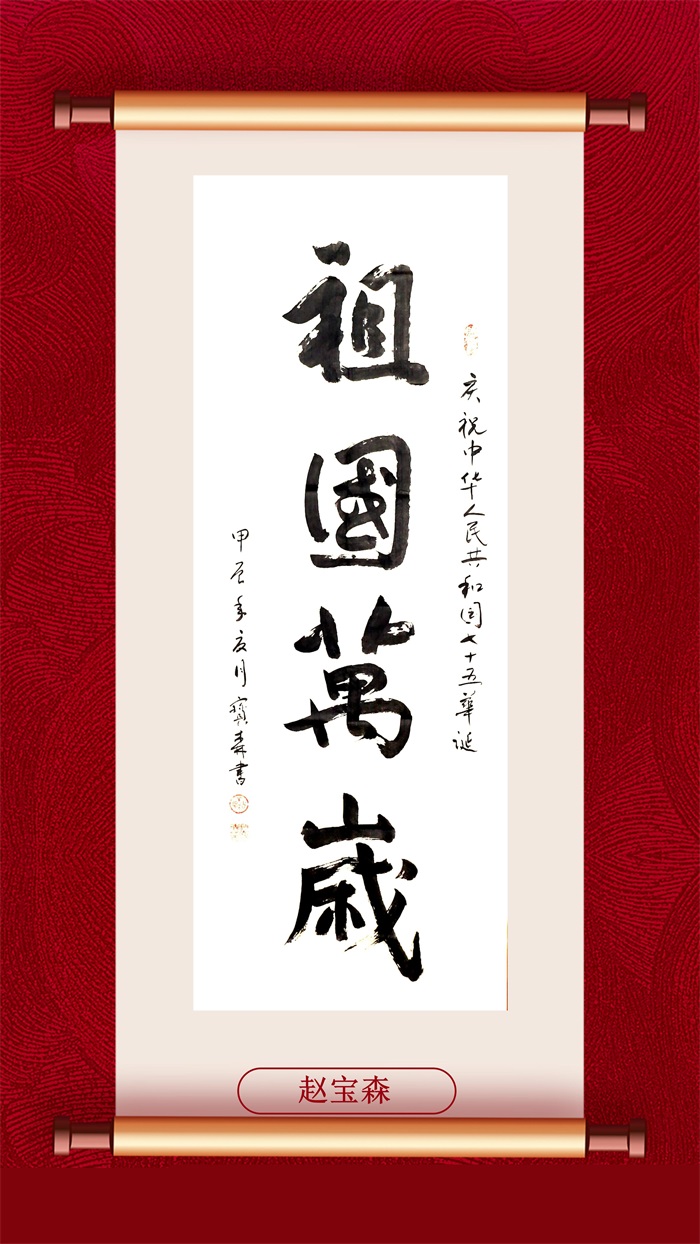 庆祝中华人民共和国七十五華诞
祖國萬歲
甲辰年夏月寶森書
赵宝森